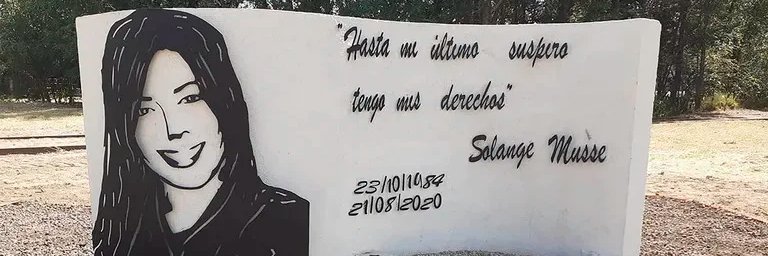 "Hasta mi último suspiro
tengo mis derechos"
Solange Musse
23/10/1984
21/08/2020